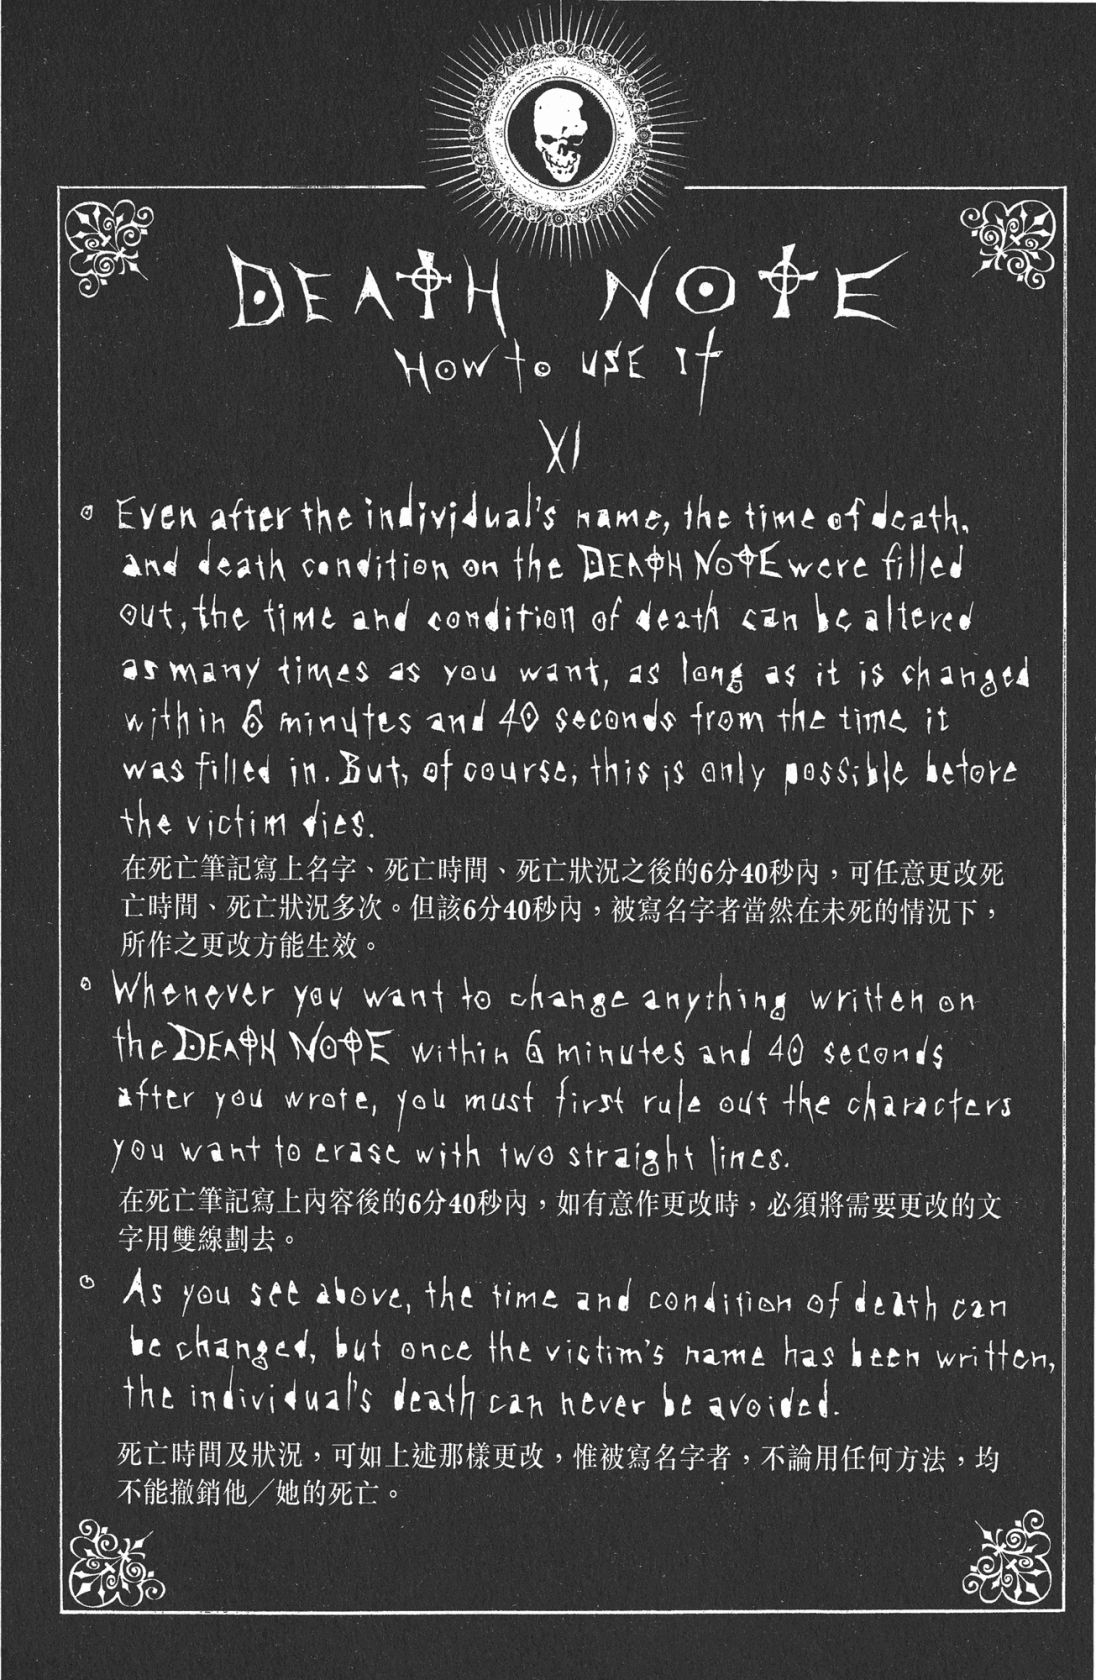 DEATH NOTE
HOW to USE It
XI
Even after the individual's name, the time of death,
and death condition on the DEATH NOTE were filled
out, the time and condition of death can be altered
as many times as you want, as long as it is changed
within 6 minutes and 40 seconds from the time it
was filled in. But, of course, this is only possible before
the victim dies.
在死亡筆記寫上名字、死亡時間、死亡狀況之後的6分40秒內，可任意更改死
亡時間、死亡狀況多次。但該6分40秒內，被寫名字者當然在未死的情況下，
所作之更改方能生效。
Whenever you want to change anything written on
the DEATH NOTE within 6 minutes and 40 seconds
after you wrote, you must first rule out the characters
you want to erase with two straight lines.
在死亡筆記寫上內容後的6分40秒內，如有意作更改時，必須將需要更改的文
字用雙線劃去。
As you see above, the time and condition of death can
be changed, but once the victim's name has been written,
the individual's death can never be avoided.
死亡時間及狀況，可如上述那樣更改，惟被寫名字者，不論用任何方法，均
不能撤銷他／她的死亡。